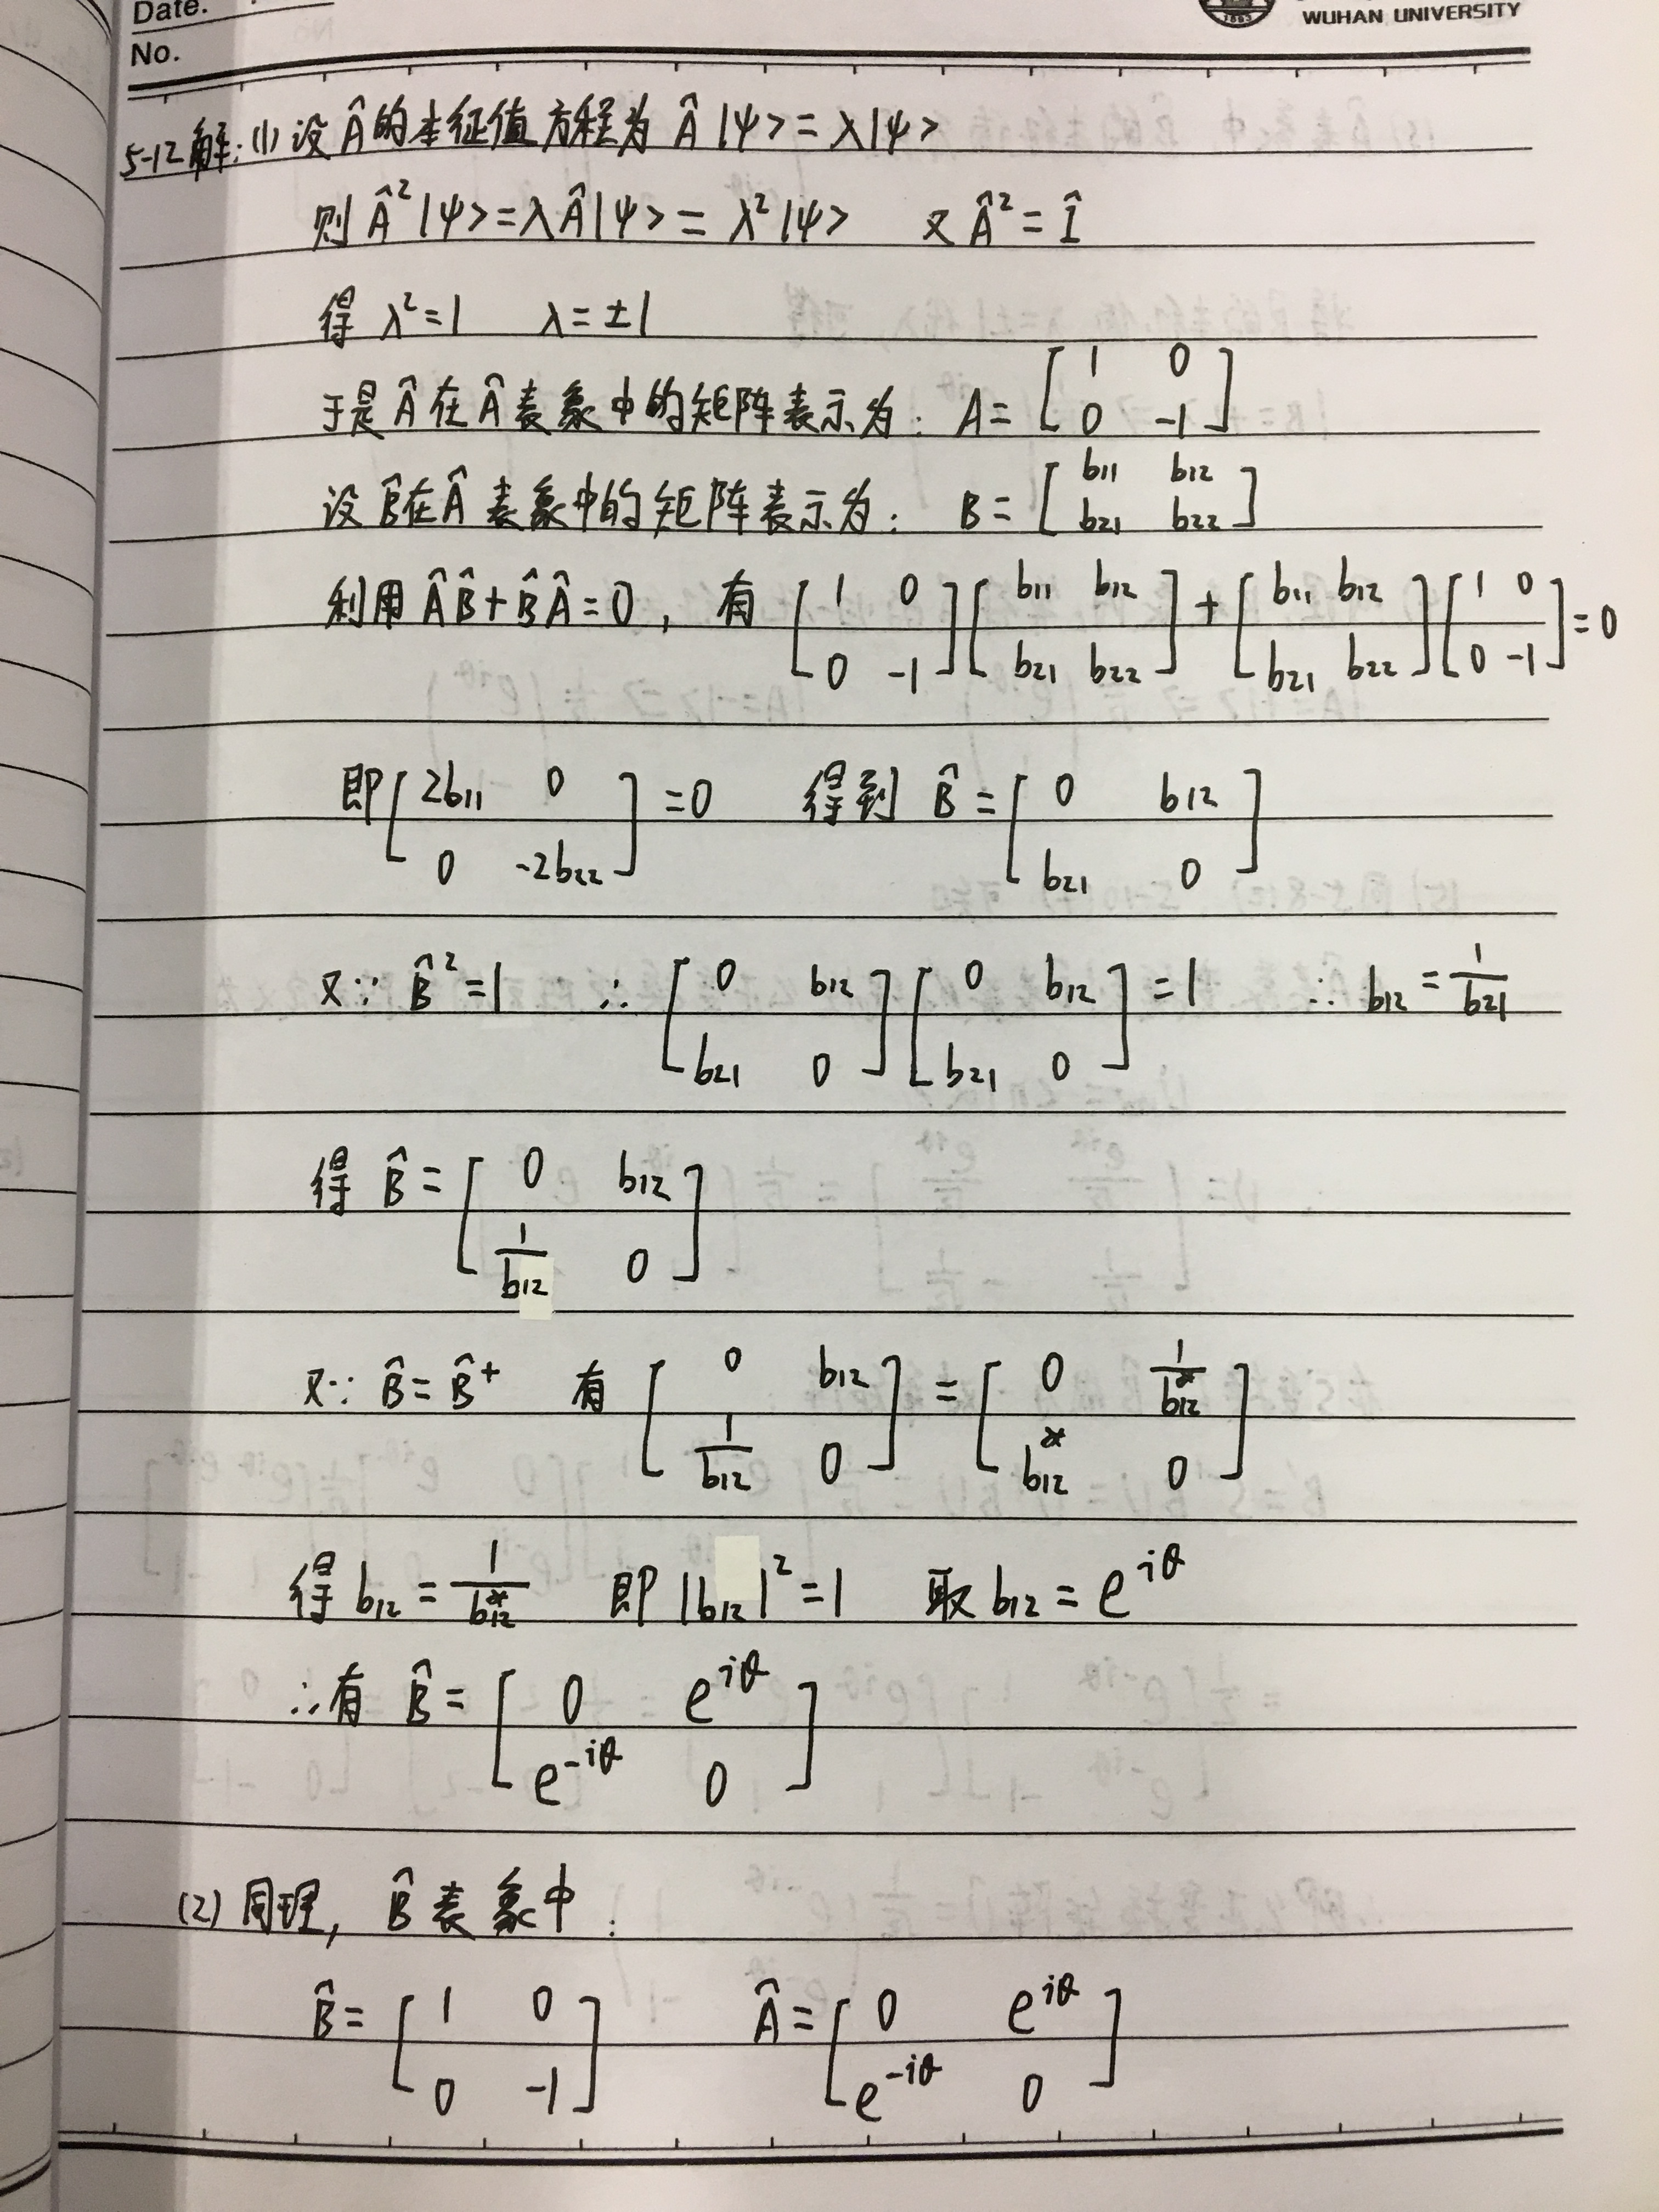 Date.
No.
WUHAN UNIVERSITY
5-12解: (1) 设Â的本征值方程为 Â|ψ> = λ|ψ>
则 Â²|ψ> = λÂ|ψ> = λ²|ψ> 又 Â² = Î
得 λ²=1 λ=±1
于是Â在Â表象中的矩阵表示为: A = [1 0; 0 -1]
设B̂在Â表象中的矩阵表示为: B = [b11 b12; b21 b22]
利用 ÂB̂+B̂Â=0, 有 [1 0; 0 -1][b11 b12; b21 b22] + [b11 b12; b21 b22][1 0; 0 -1] = 0
即 [2b11 0; 0 -2b22] = 0 得到 B̂ = [0 b12; b21 0]
又∵ B̂²=1 ∴ [0 b12; b21 0][0 b12; b21 0] = 1 ∴ b12 = 1/b21
得 B̂ = [0 b12; 1/b12 0]
又∵ B̂ = B̂⁺ 有 [0 b12; 1/b12 0] = [0 1/b12*; b12* 0]
得 b12 = 1/b12* 即 |b12|² = 1 取 b12 = e^{iθ}
∴有 B̂ = [0 e^{iθ}; e^{-iθ} 0]
(2) 同理, B̂表象中:
B̂ = [1 0; 0 -1] Â = [0 e^{iθ}; e^{-iθ} 0]